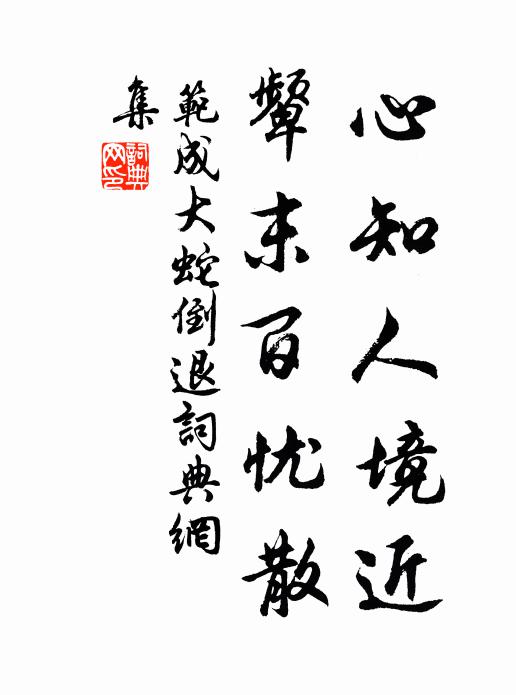 心知人境近
颦末百忧散
範成大蛇倒退詞典網
集
詞典网印